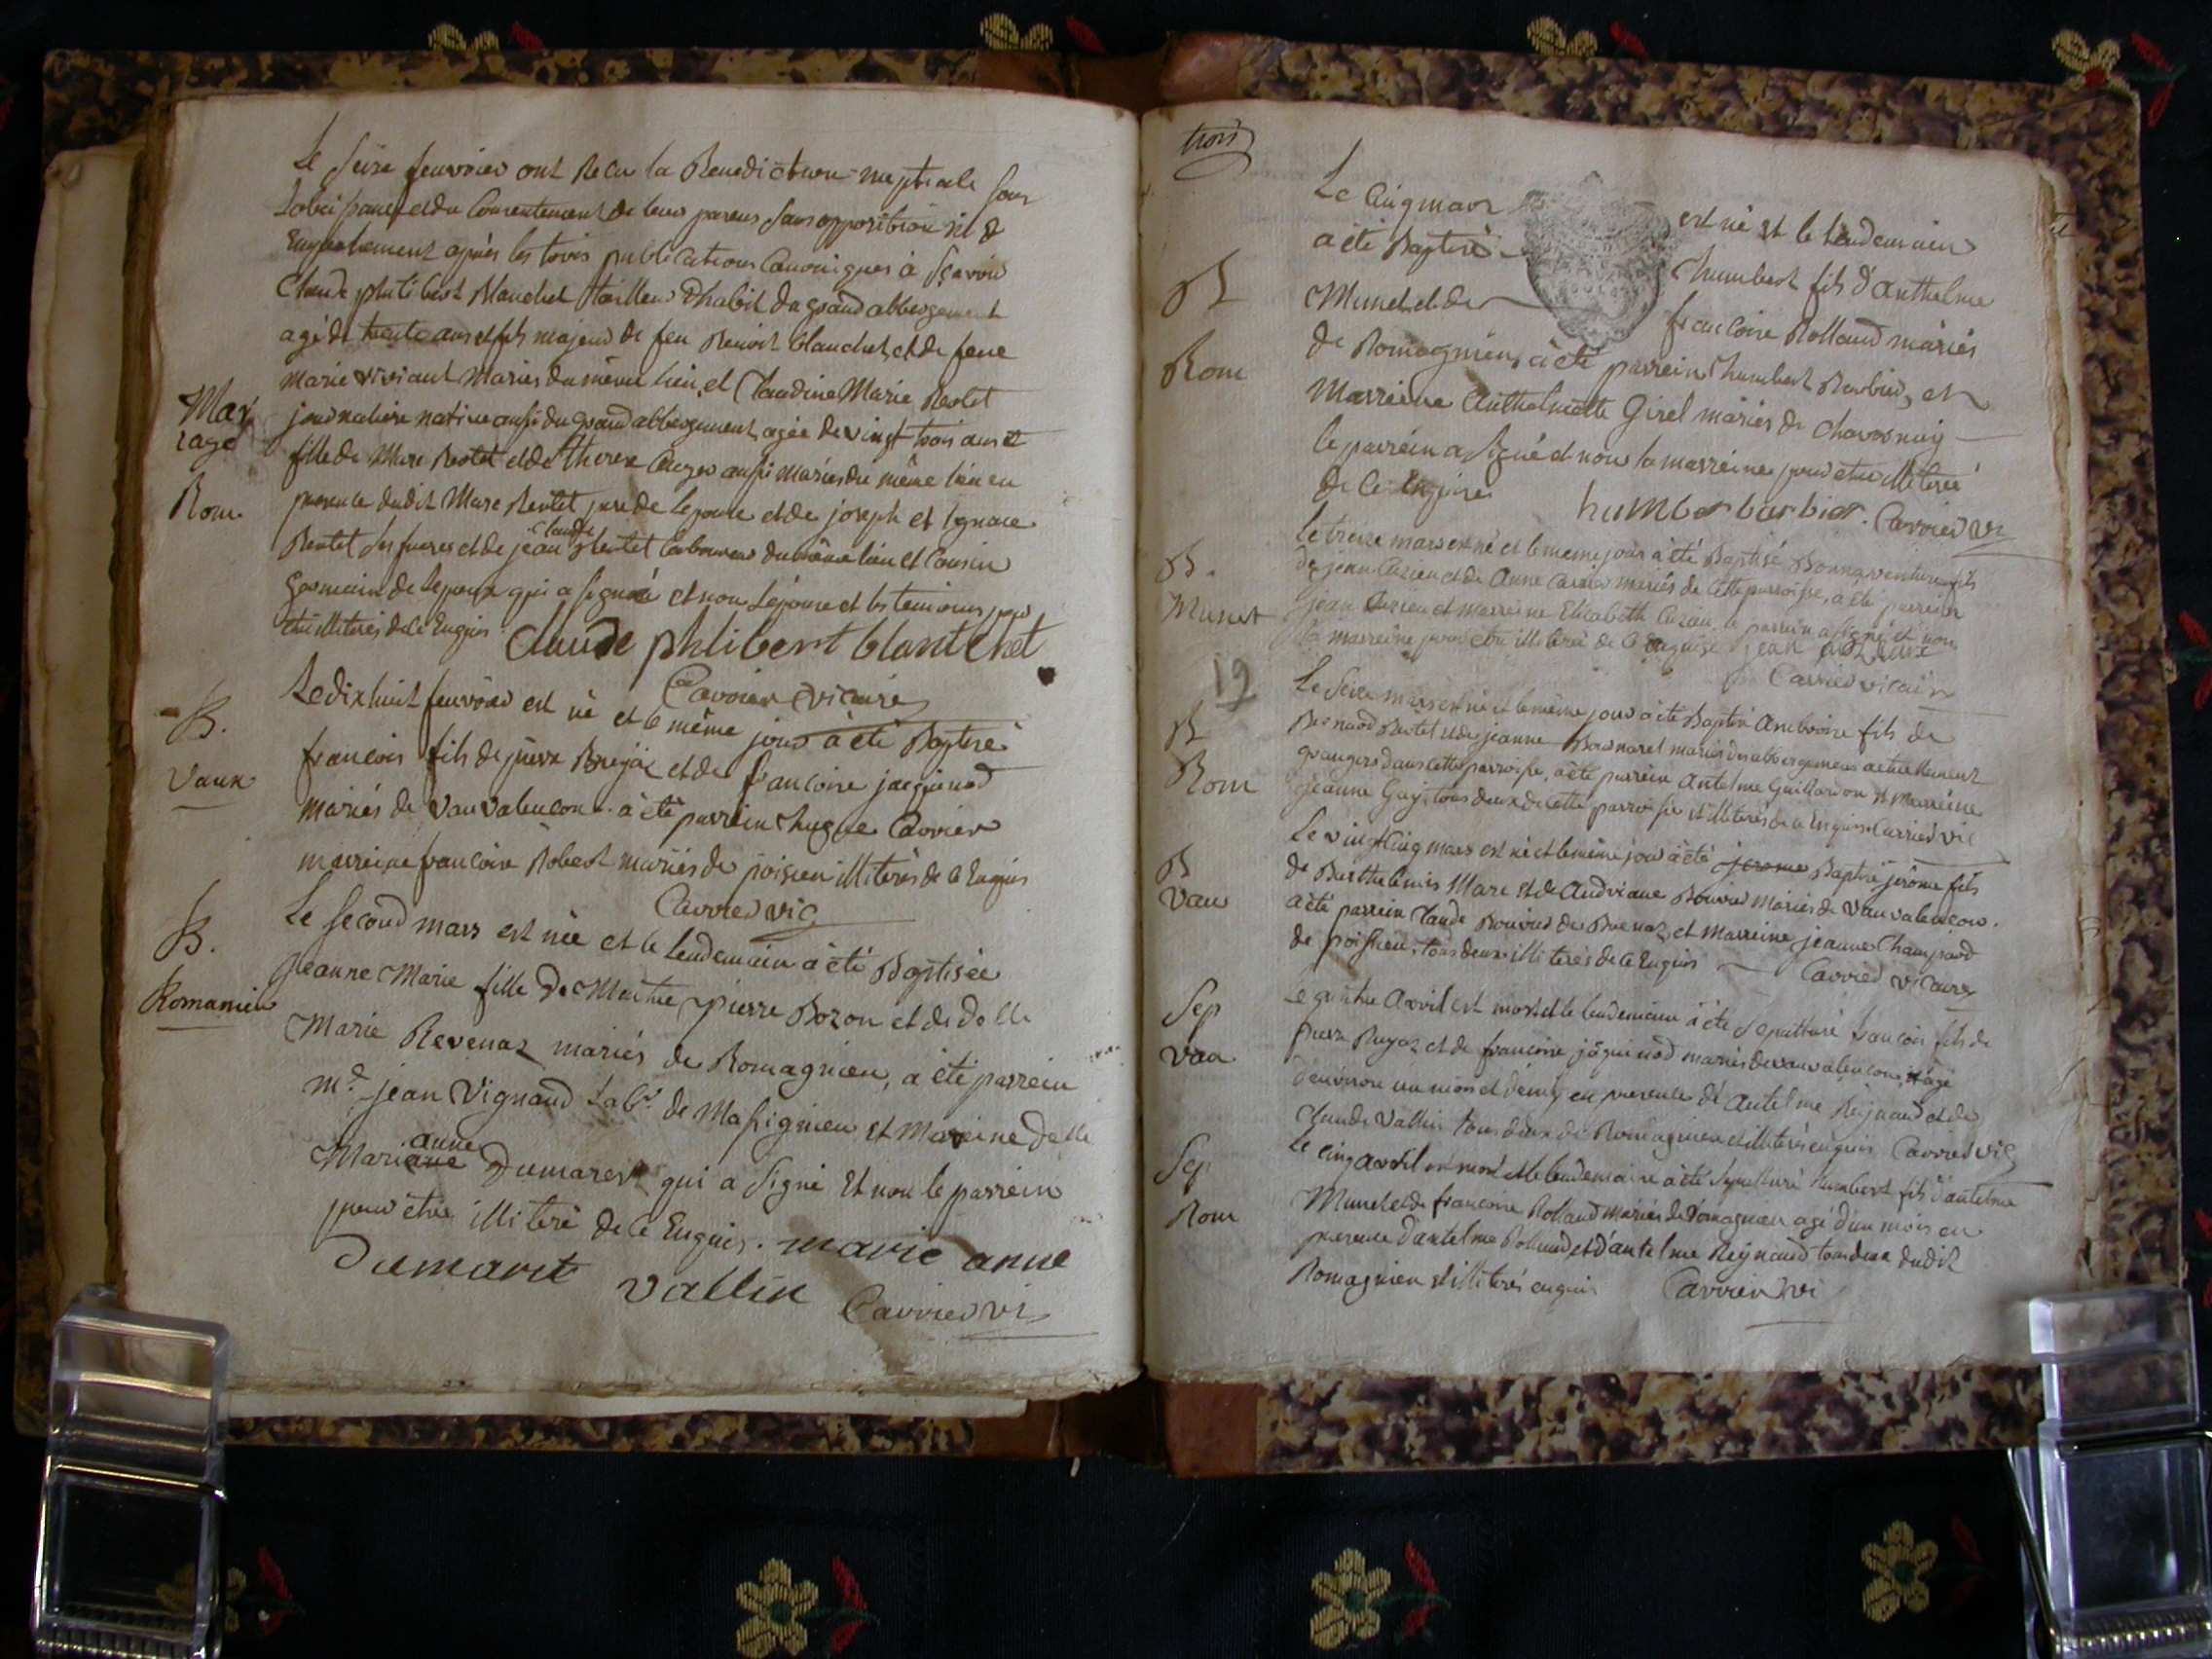 Le seise feuvrier ont Recu la Benediction nuptiale sans
et du Consentement de leur parens sans opposition ni
Empechement après les trois publications Canoniques à sçavoir
Claude philibert Blanchet tailleur d'habit du grand abbergement
agé de trente ans et fils majeur de feu Benoit blanchet, et de feue
Marie viviant Mariés du même lieu, et Claudine Marie Rextet
Mar
iage
journaliere native aussi du grand abbergement agée de vingt trois ans et
fille de Marc Rextet et de Therese aussi mariés du même lieu en
Rom.
presence dudit Marc Rextet pere de Lepouse et de joseph et Ignace
Rextet ses freres et de jean claude Rextet laboureur du même lieu et Cousin
Germain de Lepouse qui a signé et non Lépouse et les temoins pour
etre illiterés de ce Enquis
Claude philibert blanchet
Carrier vicaire
B.
Vaux
Le dixhuit feuvrier est né et le même jour à été Baptisé
francois fils de pierre et de francoise jacquinod
mariés de Vauvalencon. à été parrein hugue Carrier
marreine francoise Robert mariés de poisieu illiterés de ce Enquis
Carrier vic
B.
Romanieu
Le second mars est née et le lendemain a été Baptisée
jeanne Marie fille de Maitre pierre Bozon et de delle
Marie Revenaz mariés de Romagnieu, a été parrein
mr jean Vignaud Labr de Massignieu et mareine delle
Marie anne Dumarest qui a signé Et non le parrein
pour etre illiteré de ce Enquis. marie anne
dumaret vallin
Carrier vi
trois
Le Cinq mars est né et le lendemain
a été Baptisé humbert fils d'anthelme
B
Munet et de francoise Rolland mariés
Rom
de Romagnieu, à été parrein humbert Barbier, et
Marreine Anthelmette Girel mariés de chavosnay
le parrein a signé et non la marreine pour etre illiterée
de ce Enquise humber barbier. Carrier vi
B.
Munet
le treize mars est né et le meme jour à été Baptisé Bonnaventure fils
de jean Cuzieu et de Anne Carrier mariés de Cette parroisse, a été parrein
jean Cuzieu et marreine Elisabeth Cuzieu, le parrein a signé et non
la marreine pour etre illiterée de ce enquise jean
Carrier vicair
19
B
Rom
Le Seize mars est né et le même jour à été Baptisé Ambroise fils de
Bernard Rextet et de jeanne mariés des abbergemens actuellement
grangers dans Cette parroisse, a été parrein Antelme Guillardon et Marreine
jeanne Guy, tous deux de cette parroisse et illiterés de ce Enquis Carrier vic
B
Vau
Le vingt Cinq mars est né et le même jour à été jerome Baptisé jerôme fils
de Barthelemis Marc et de Andreane Bouvier Mariés de Vauvalencon.
à été parrein Claude Bouvier de Buenaz, et Marreine jeanne Champiaud
de poisieu, tous deux illiterés de ce Enquis Carrier vicaire
Sep
Vau
Le quatre Avril est mort et le lendemain à été sepulturé francois fils de
pierre et de francoise jaquinod mariés de Vauvalencon, agé
d'environ un mois et demi, en presence de Antelme Reynaud et de
Claude Vallin tous deux de Romagnieu et illiterés enquis Carrier vic
Sep
Rom
Le cinq avril est mort et le lendemain a été sepulturé humbert fils d'antelme
Munet et de francoise Rolland mariés de Romagnieu agé d'un mois en
presence d'antelme Rolland et d'antelme Reynaud tous deux dudit
Romagnieu et illiterés enquis Carrier vi